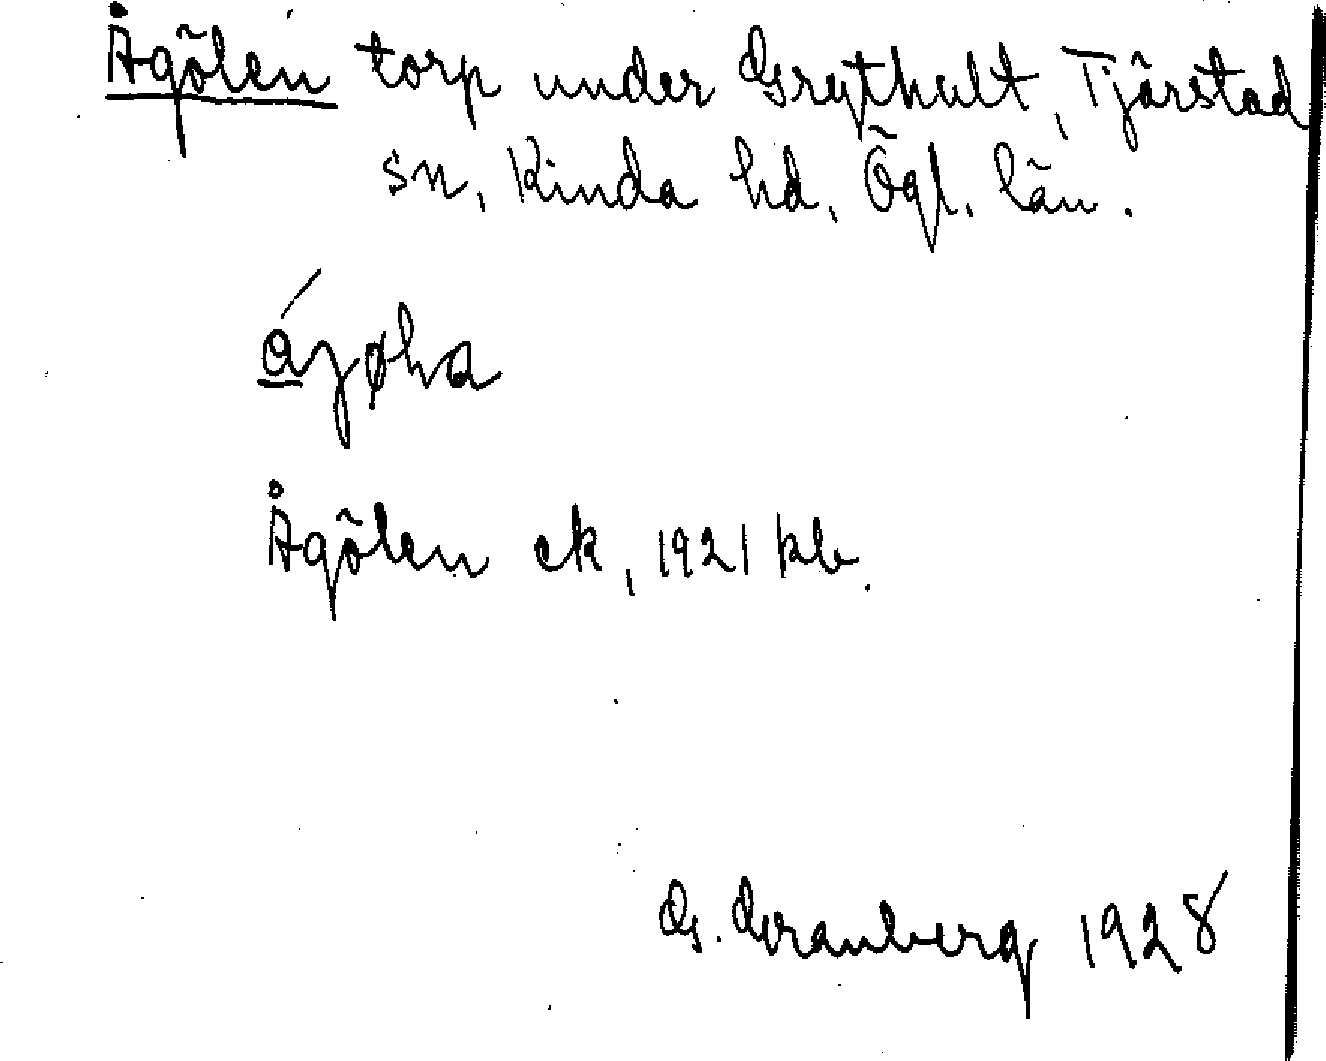 Ågölen torp under Grythult, Tjärstad
sn, Kinda hd, Ögl. län.
Ågölen ek, 1921 kb.
G. Granberg 1928